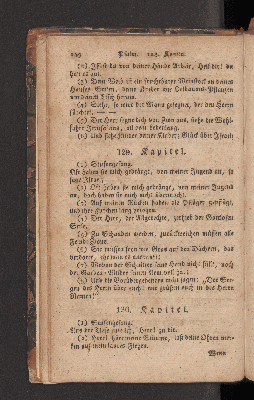 Psalm. 128. Kapitel.
(2) Issest du von deiner Hände Arbeit, Heil dir! du
hast es gut.
(3) Dein Weib ist ein fruchtbarer Weinstock an deines
Hauses Seiten, deine Kinder wie Oelbaums-Pflanzen
um deinen Tisch herum.
(4) Siehe, so wird der Mann gesegnet, der den Herrn
fürchtet.
(5) Der Herr segne dich von Zion aus, siehe der Wohl-
fahrt Jerusalems, all dein Lebenlang.
(6) Und siehe Kinder deiner Kinder; Glück über Israel!
129. Kapitel.
(1) Stufengesang.
Oft haben sie mich gedrückt, von meiner Jugend an, so
sage Israel;
(2) Oft haben sie mich gedrückt, von meiner Jugend
an, doch haben sie mich nicht übermocht!
(3) Auf meinem Rücken haben die Pflüger gepflügt,
und
(4) Der Herr, der Gerechte, zerhieb der Gottlosen
Seile.
(5) Zu Schanden werden, zurückweichen müssen alle
Feinde Zions.
(6) Sie müssen seyn wie Gras auf den Dächern, das
verdorrt, ehe man es ausrauft.
(7) Wovon der Schnitter seine Hand nicht füllt, noch
der Garben-Binder seinen Arm voll.
(8) Und die Vorübergehenden nicht sagen: „Der Se-
gen des Herrn über euch! wir grüßen euch in des Herrn
Namen!"
130. Kapitel.
(1) Stufengesang.
Aus der Tiefe ruf ich, Herr! zu dir.
(2) Herr! höre meine Stimme, laß deine Ohren mer-
ken auf mein lautes Flehen.
Wenn